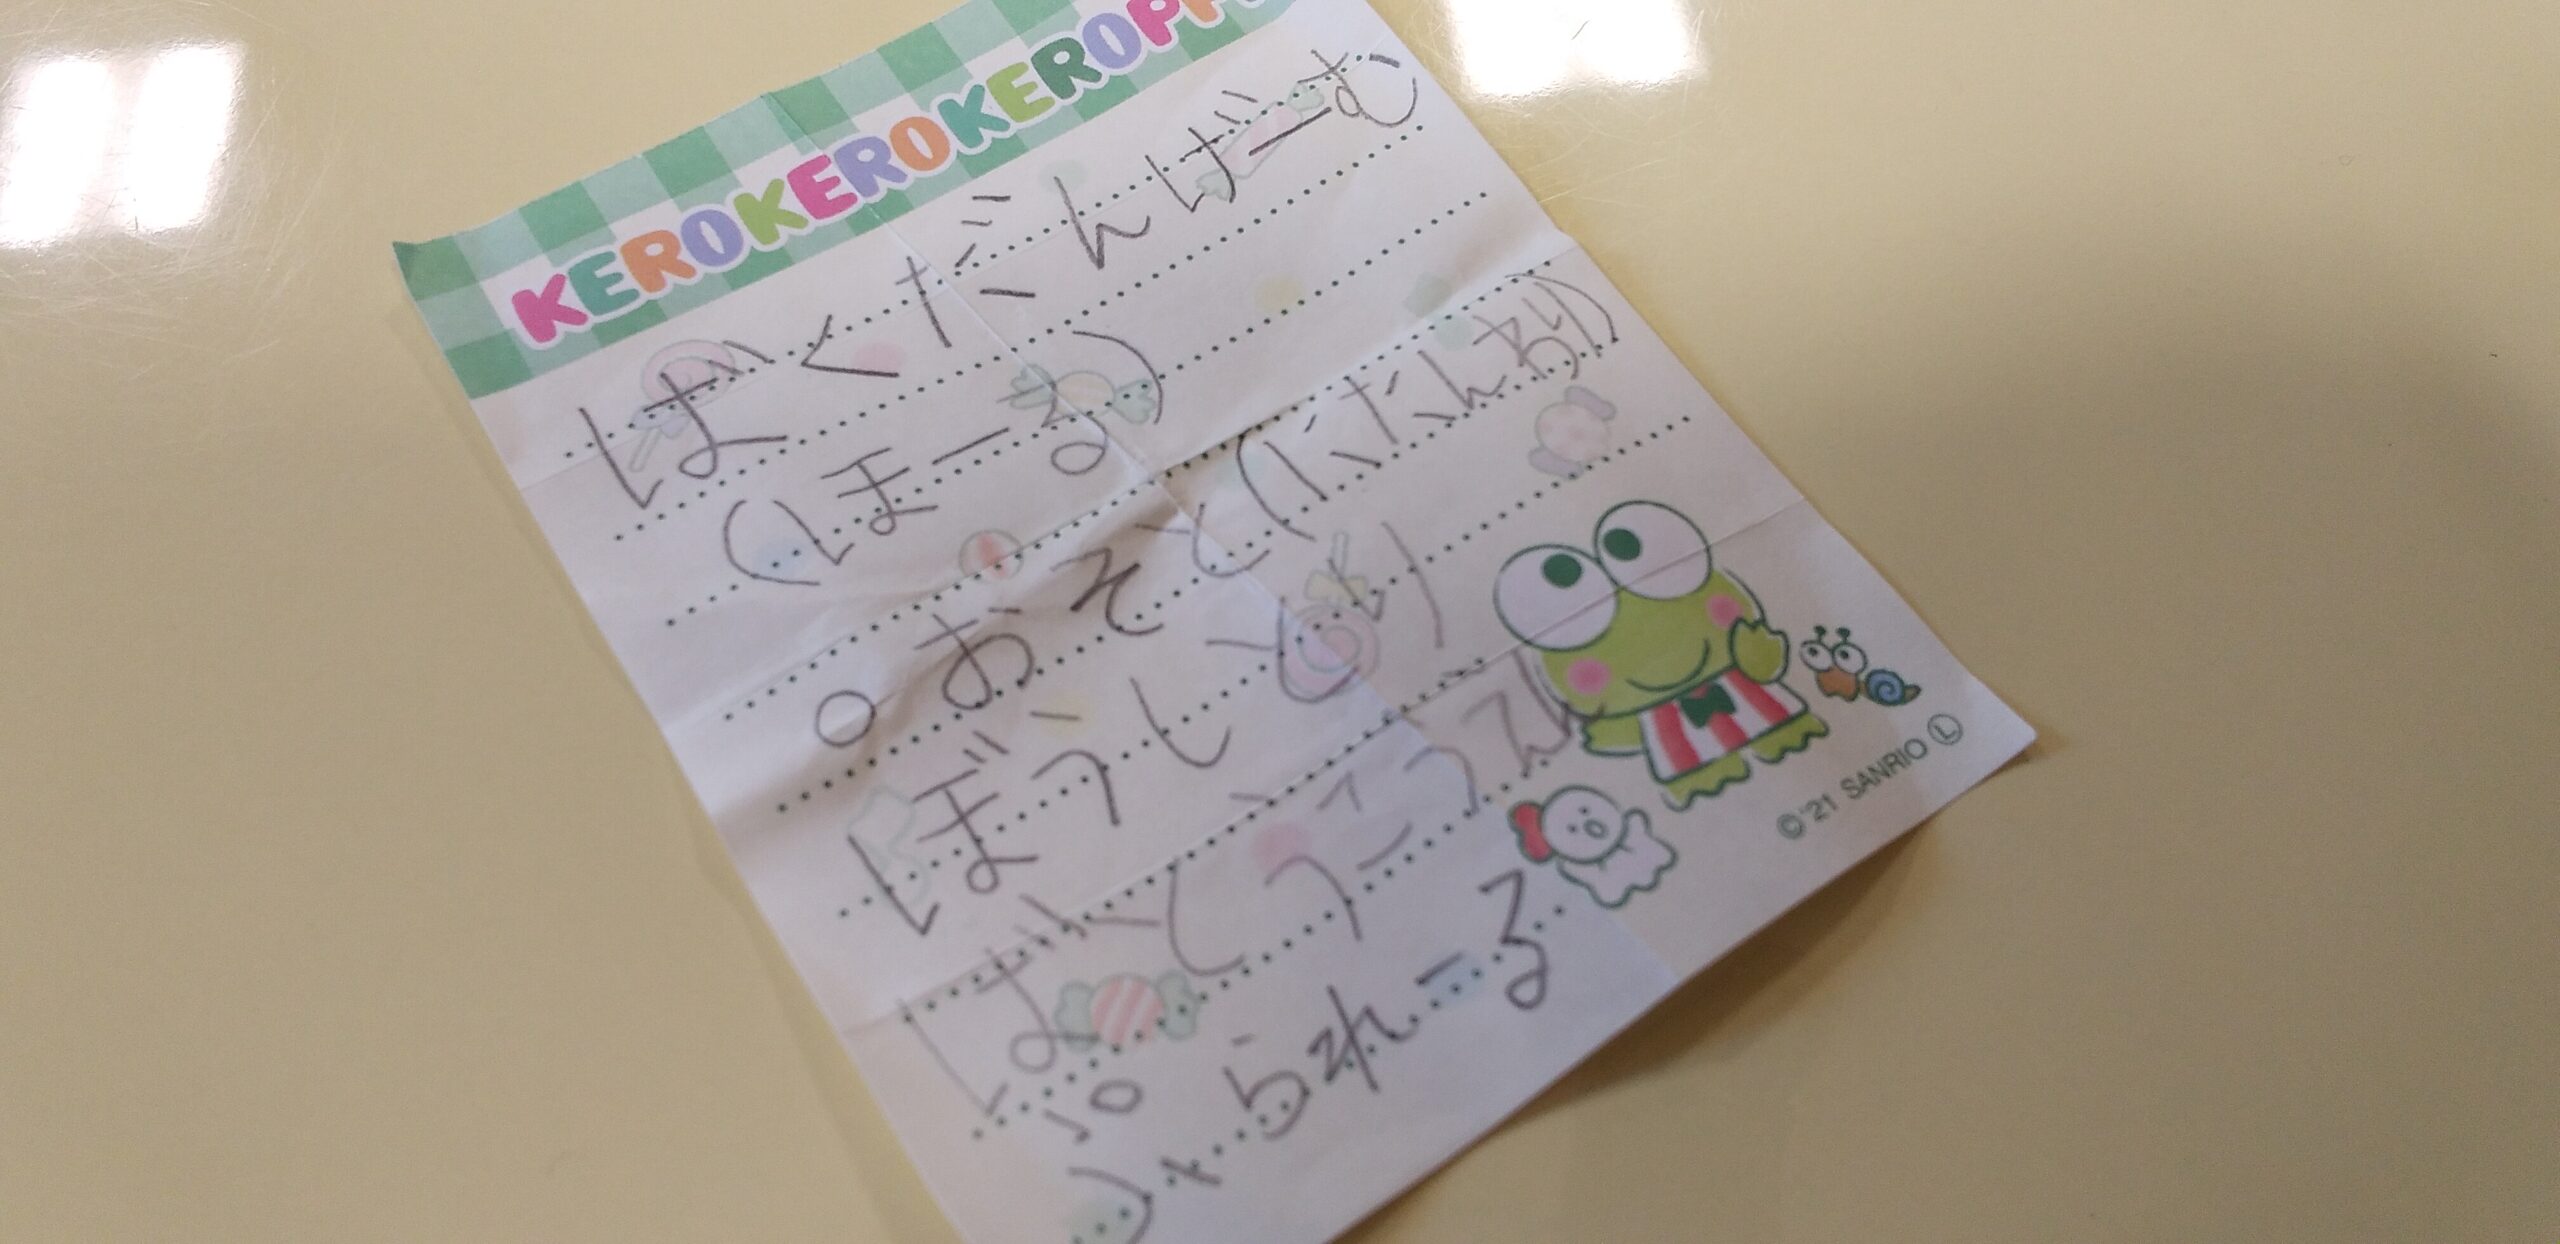 KEROKEROKEROKEROPPI
ばくだんばーむ
(ほーる)
○おそと(にだんあり)
ぼうしとり
ばくしょうこうえん
ぷ
られーる
©'21 SANRIO Ⓛ